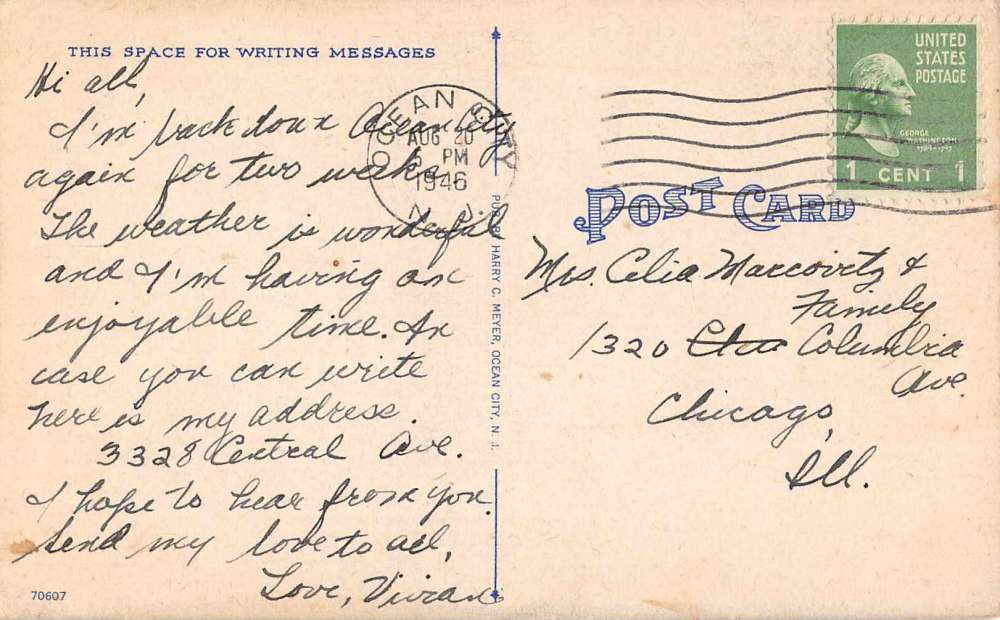 THIS SPACE FOR WRITING MESSAGES
Hi all,
I'm back down Ocean City
again for two weeks.
The weather is wonderful
and I'm having an
enjoyable time. In
case you can write
here is my address.
3328 Central Ave.
I hope to hear from you.
Send my love to all,
Love, Vivian
70607
PUB. BY HARRY C. MEYER, OCEAN CITY, N. J.
OCEAN CITY
AUG 20
5 PM
1946
N. J.
UNITED
STATES
POSTAGE
GEORGE
WASHINGTON
1789-1797
1 CENT 1
POST CARD
Mrs. Celia Marcovitz &
Family
1320 Columbia
Ave.
Chicago,
Ill.